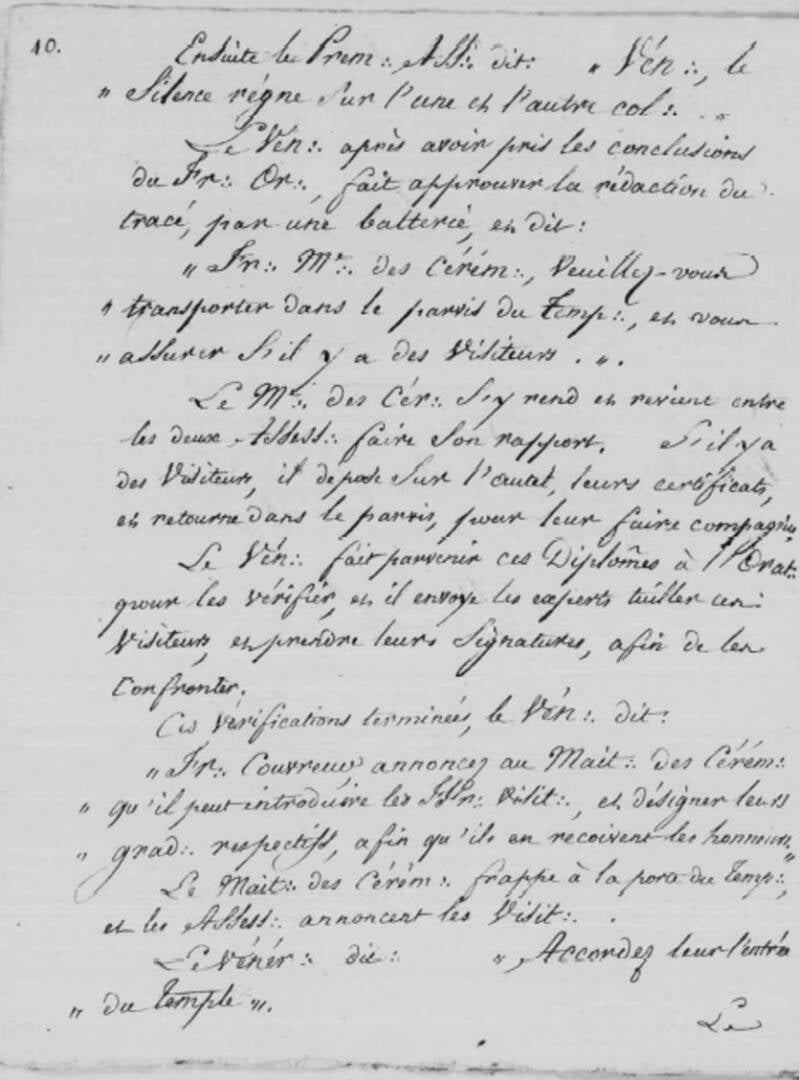 10.
Ensuite le Prem:. Ass:. dit: „ Vén:., le
„ Silence régne Sur l'une et l'autre col:. „
Le Vén:. après avoir pris les conclusions
du Fr:. Or:., fait approuver la rédaction du
tracé, par une batterie, et dit:
„ Fr:. Me:. des Cérém:., Veuillez-vous
„ transporter dans le parvis du Temp:., et vous
„ assurer S'il y a des Visiteurs . „.
Le Me:. des Cér:. S'y rend et revient entre
les deux Assess:. faire Son rapport. S'il y a
des Visiteurs, il dépose Sur l'autel, leurs certificats,
et retourne dans le parvis, pour leur faire compagnie,
Le Vén:. fait parvenir ces Diplomes à l'Orat:.
pour les vérifier, et il envoye les experts tuiller ces
Visiteurs, et prendre leurs Signatures, afin de les
Confronter.
Ces Vérifications terminées, le Vén:. dit:
„ Fr:. Couvreur, annoncez au Mait:. des Cérém:.
„ qu'il peut introduire les FFr:. Visit:., et désigner leurs
„ grad:. respectifs, afin qu'ils en recoivent les honneurs,„
Le Mait:. des Cérém:. frappe à la porte du Temp:.,
et les Assess:. annoncent les Visit:. .
Le Vénér:. dit: „ Accordez leur l'entrée
„ du Temple „.
Le